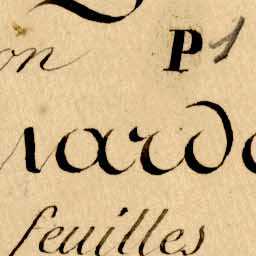 on P1
arde
feuilles